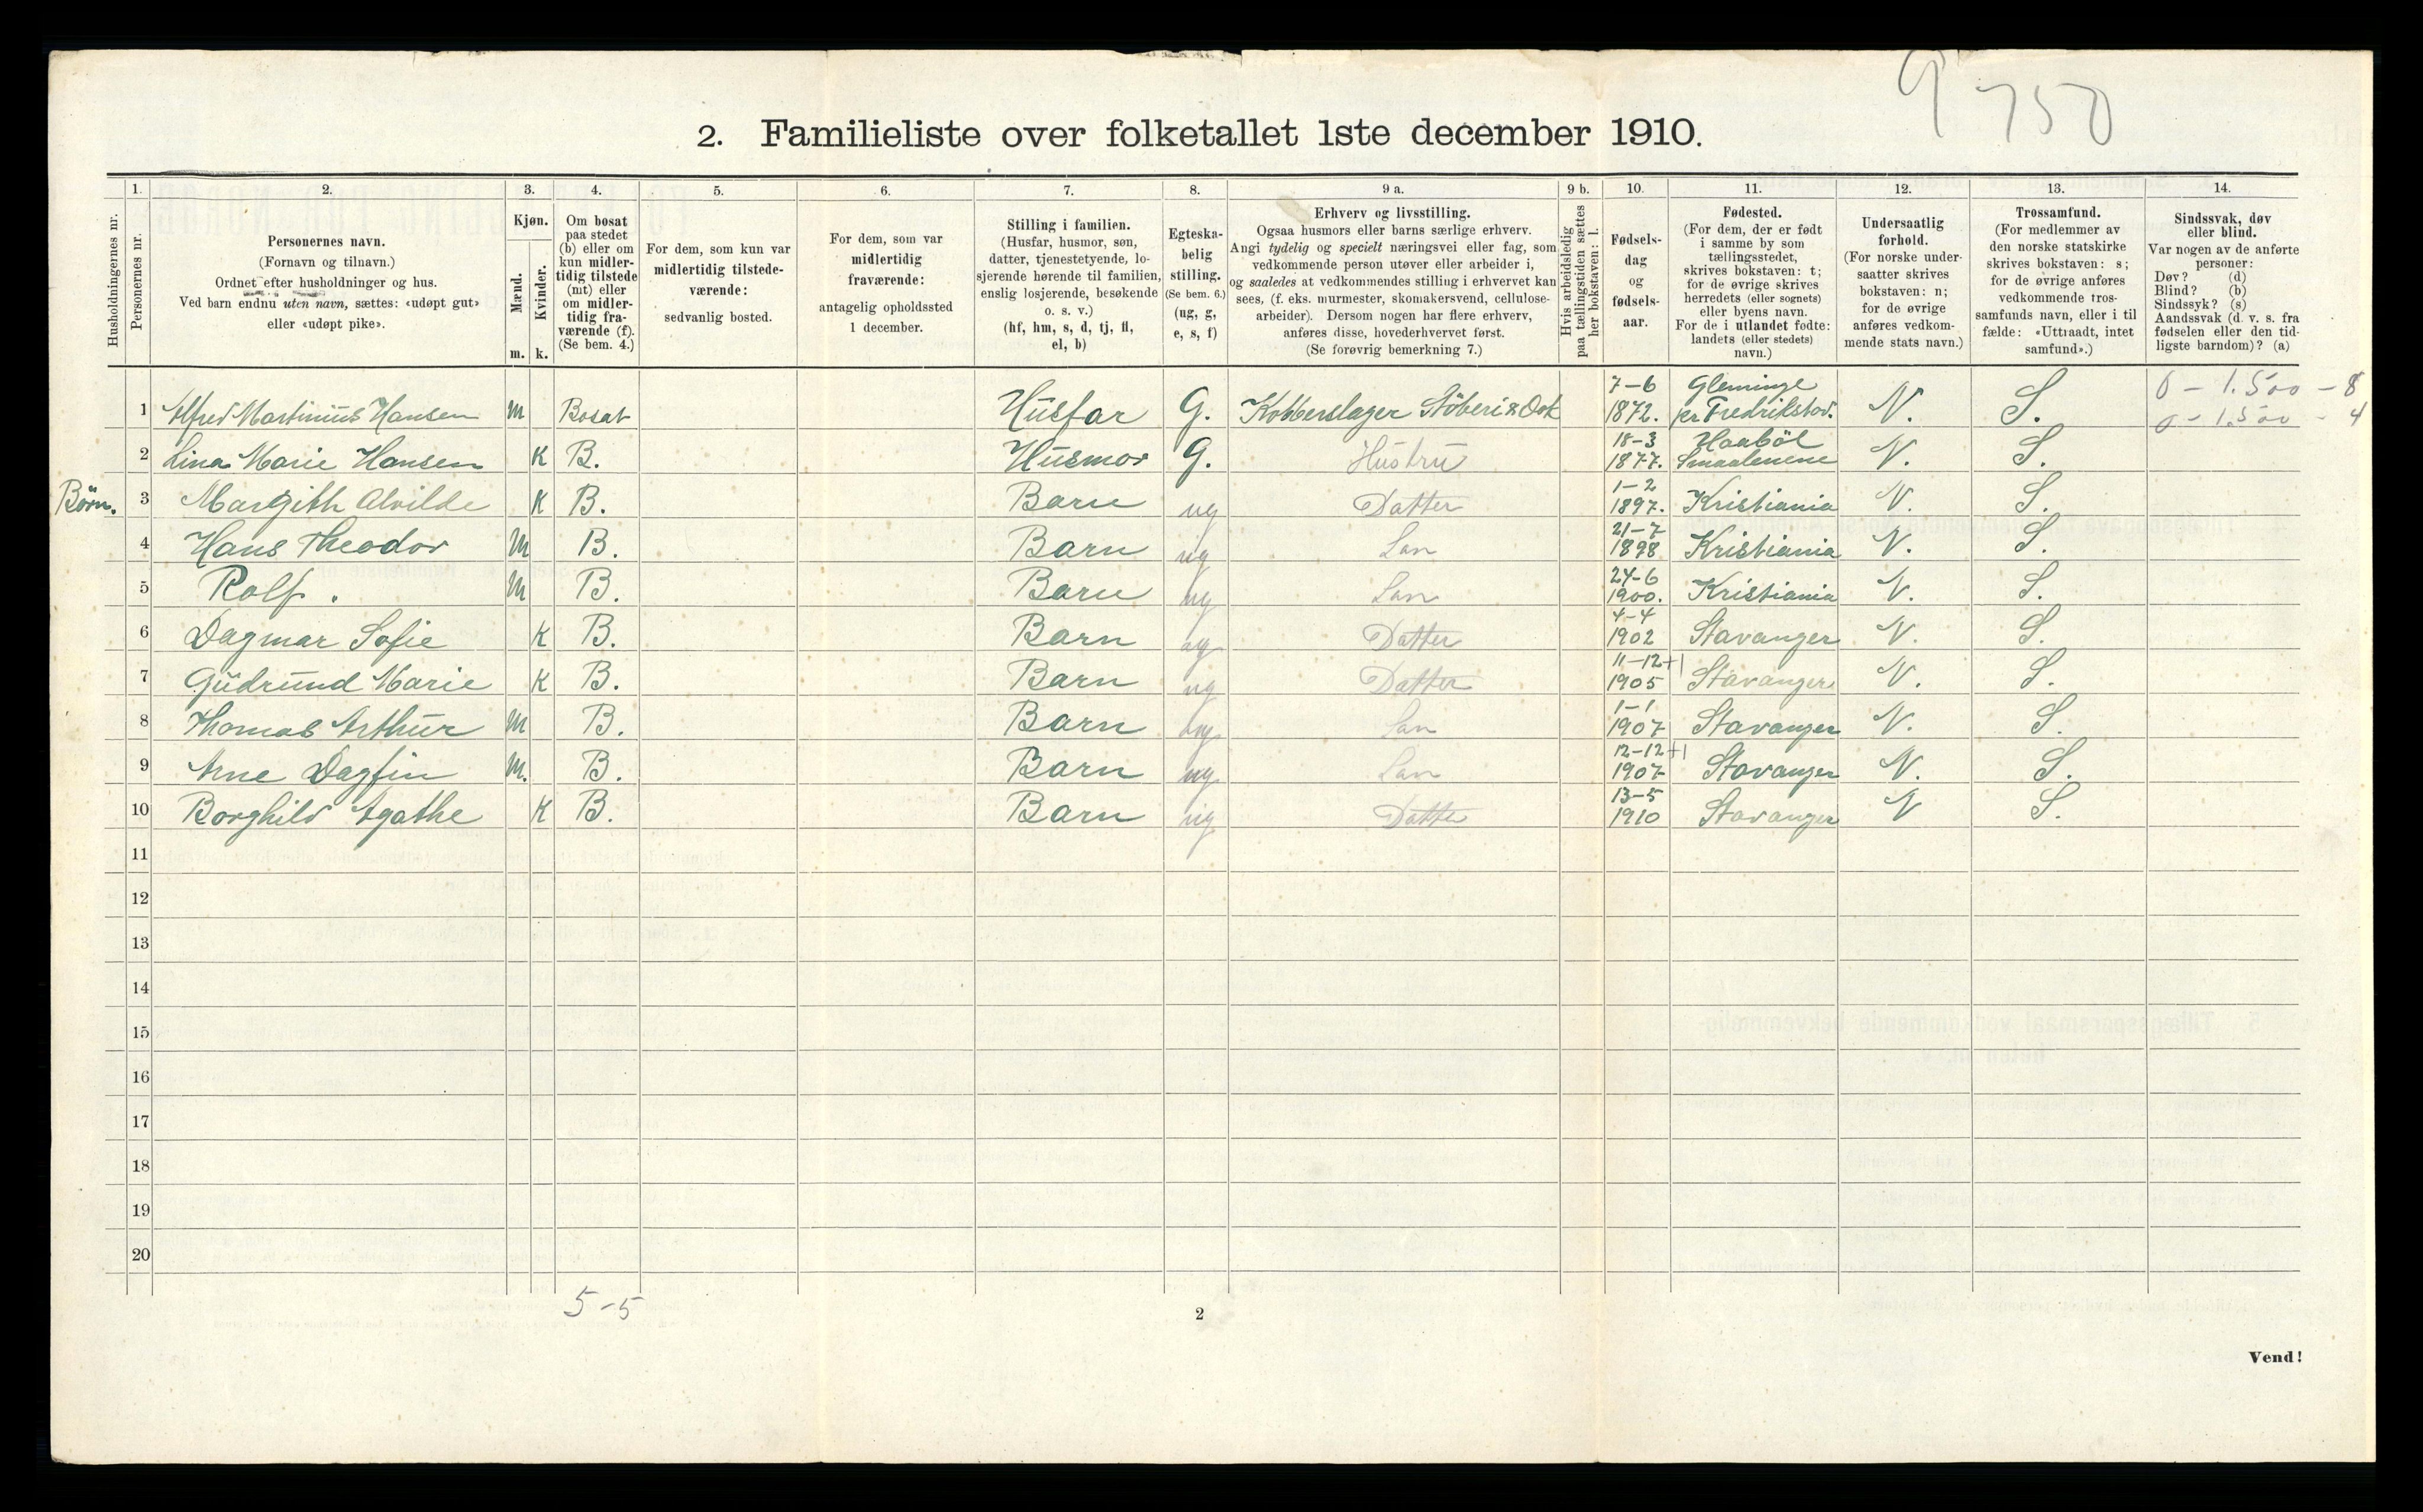 9 750
2. Familieliste over folketallet 1ste december 1910.
1. 2. 3. 4. 5. 6. 7. 8. 9 a. 9 b. 10. 11. 12. 13. 14.
Husholdningernes nr.
Personernes nr.
Personernes navn.
(Fornavn og tilnavn.)
Ordnet efter husholdninger og hus.
Ved barn endnu uten navn, sættes: «udøpt gut»
eller «udøpt pike».
Kjøn.
Mænd.
Kvinder.
m. k.
Om bosat
paa stedet
(b) eller om
kun midler-
tidig tilstede
(mt) eller
om midler-
tidig fra-
værende (f).
(Se bem. 4.)
For dem, som kun var
midlertidig tilstede-
værende:
sedvanlig bosted.
For dem, som var
midlertidig
fraværende:
antagelig opholdssted
1 december.
Stilling i familien.
(Husfar, husmor, søn,
datter, tjenestetyende, lo-
sjerende hørende til familien,
enslig losjerende, besøkende
o. s. v.)
(hf, hm, s, d, tj, fl,
el, b)
Egteska-
belig
stilling.
(Se bem. 6.)
(ug, g,
e, s, f)
Erhverv og livsstilling.
Ogsaa husmors eller barns særlige erhverv.
Angi tydelig og specielt næringsvei eller fag, som
vedkommende person utøver eller arbeider i,
og saaledes at vedkommendes stilling i erhvervet kan
sees, (f. eks. murmester, skomakersvend, cellulose-
arbeider). Dersom nogen har flere erhverv,
anføres disse, hovederhvervet først.
(Se forøvrig bemerkning 7.)
Hvis arbeidsledig
paa tællingstiden sættes
her bokstaven: l.
Fødsels-
dag
og
fødsels-
aar.
Fødested.
(For dem, der er født
i samme by som
tællingsstedet,
skrives bokstaven: t;
for de øvrige skrives
herredets (eller sognets)
eller byens navn.
For de i utlandet fødte:
landets (eller stedets)
navn.)
Undersaatlig
forhold.
(For norske under-
saatter skrives
bokstaven: n;
for de øvrige
anføres vedkom-
mende stats navn.)
Trossamfund.
(For medlemmer av
den norske statskirke
skrives bokstaven: s;
for de øvrige anføres
vedkommende tros-
samfunds navn, eller i til
fælde: «Uttraadt, intet
samfund».)
Sindssvak, døv
eller blind.
Var nogen av de anførte
personer:
Døv? (d)
Blind? (b)
Sindssyk? (s)
Aandssvak (d. v. s. fra
fødselen eller den tid-
ligste barndom)? (a)
7-6 Gleminge 0 - 1.500 - 8
1 Alfred Martinius Hansen M Bosat Husfar G. Kobberslager Stöberi & Dok 1872. pr Fredrikstad. N. S. 0 - 1.500 - 4
18-3 Haaböl
2 Lina Marie Hansen K B. Husmor G. Hustru 1877. Smaalenene N. S.
1-2
Börn. 3 Margith Alvilde K B. Barn ug Datter 1897. Kristiania N. S.
21-7
4 Hans Theodor M B. Barn ug Søn 1898 Kristiania N. S.
24-6
5 Rolf. M B. Barn ug Søn 1900. Kristiania N. S.
4-4
6 Dagmar Sofie K B. Barn ug Datter 1902 Stavanger N. S.
11-12+1
7 Gudrund Marie K B. Barn ug Datter 1905 Stavanger N. S.
1-1
8 Thomas Arthur M B. Barn ug Søn 1907 Stavanger N. S.
12-12+1
9 Arne Dagfin M. B. Barn ug Søn 1907 Stavanger N. S.
13-5
10 Borghild Agathe K B. Barn ug Datter 1910 Stavanger N S.
11
12
13
14
15
16
17
18
19
20
5-5
2
Vend!